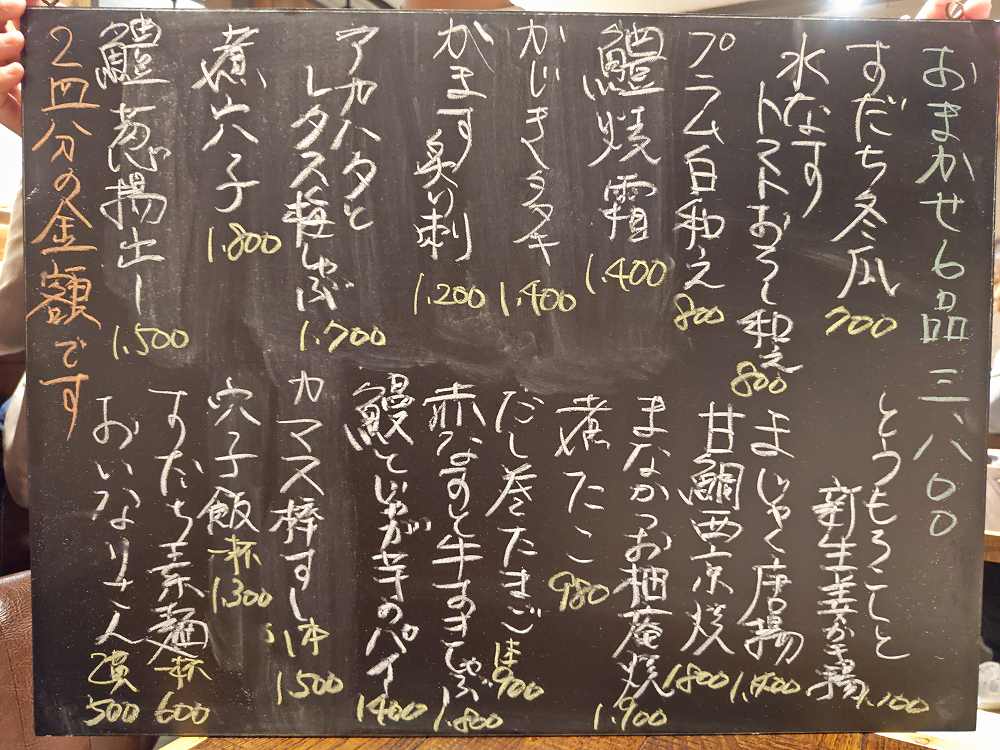 おまかせ6品 三、八〇〇
すだち冬瓜 700
水なす
トマトおろし和え 800
プラム白和え 800
鱧焼霜 1.400
かじきタタキ 1.400
かます炙り刺 1.200
アカハタと
レタス梅しゃぶ 1.700
煮穴子 1.800
鱧葱揚出し 1.500
2皿分の金額です
とうもろこしと
新生姜かき揚 1.100
まじゃく唐揚 1.400
甘鯛西京焼 1800
まながつお柚庵焼 1.900
煮たこ 980
だし巻たまご 1本 900
赤なすと牛すきしゃぶ 1.800
鰻とじゃが芋のパイ 1400
カマス棒すし 1本 1500
穴子飯 一杯 1.300
すだち素麺 一杯 600
おいなりさん 2ヶ 500